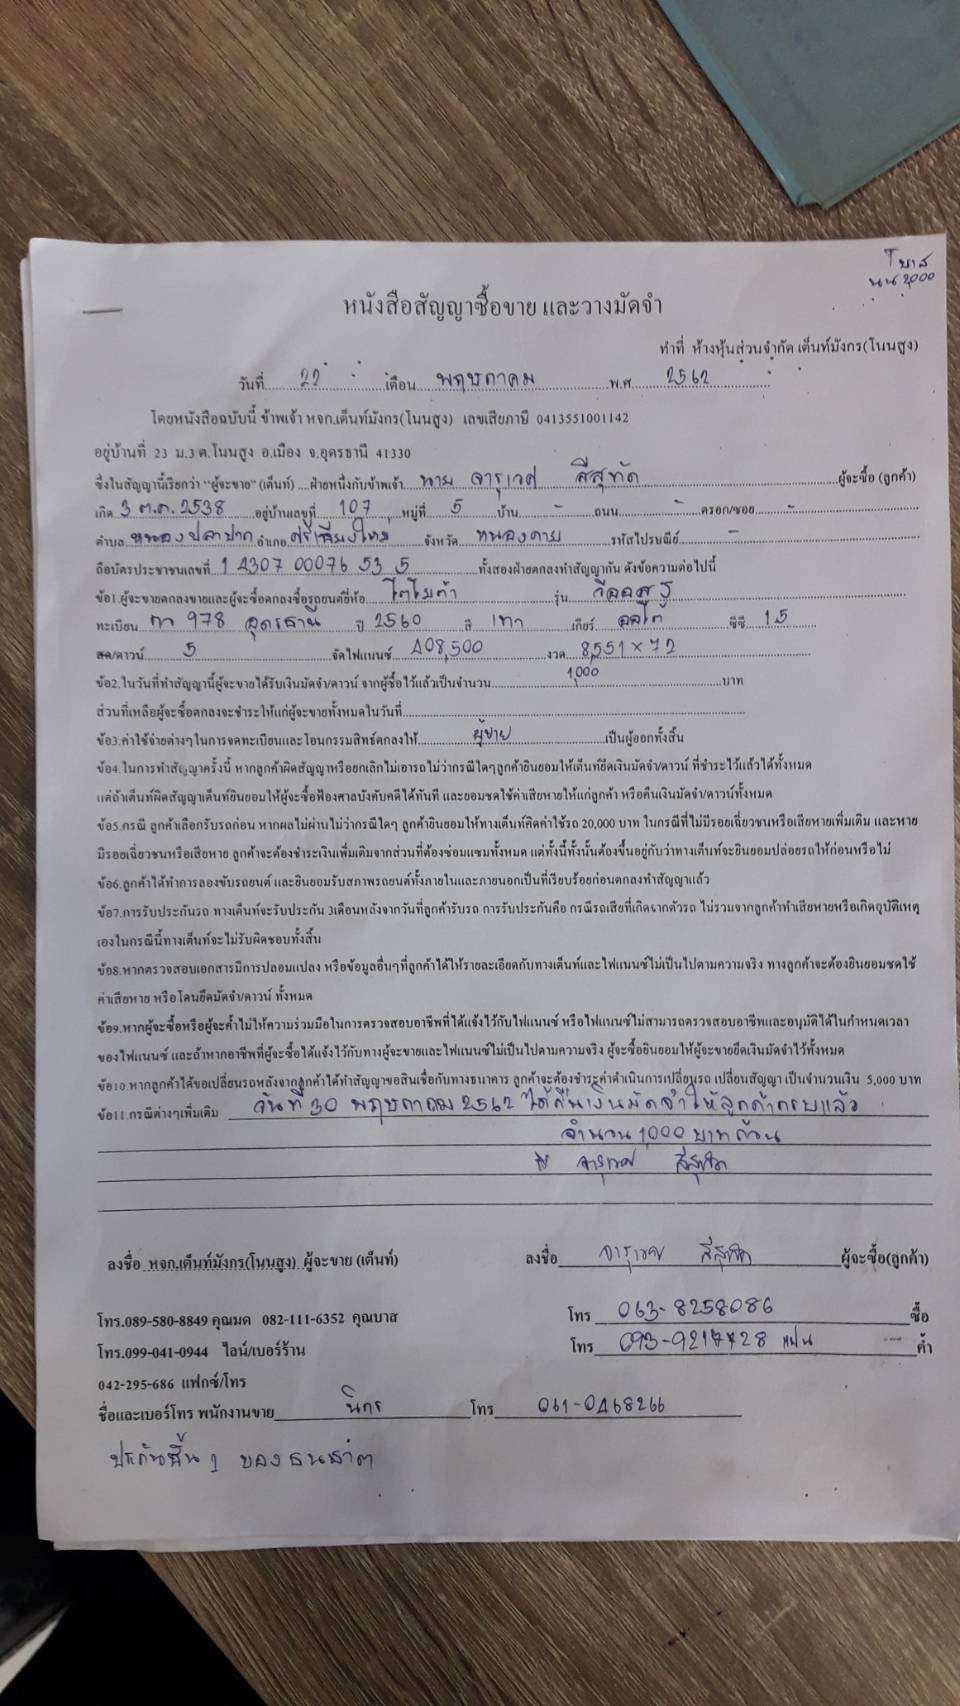 T บาส
นน 2,000
หนังสือสัญญาซื้อขาย และวางมัดจำ
ทำที่ ห้างหุ้นส่วนจำกัด เต็นท์มังกร(โนนสูง)
วันที่ 22 เดือน พฤษภาคม พ.ศ 2562
โดยหนังสือฉบับนี้ ข้าพเจ้า หจก.เต็นท์มังกร(โนนสูง) เลขเสียภาษี 0413551001142
อยู่บ้านที่ 23 ม.3 ต.โนนสูง อ.เมือง จ.อุดรธานี 41330
ซึ่งในสัญญานี้เรียกว่า "ผู้จะขาย" (เต็นท์) ....ฝ่ายหนึ่งกับข้าพเจ้า นาย จารุเวศ สีสุทัด ผู้จะซื้อ (ลูกค้า)
เกิด 3 ต.ค. 2538 อยู่บ้านเลขที่ 107 หมู่ที่ 5 บ้าน - ถนน - ตรอก/ซอย -
ตำบล หนองปลาปาก อำเภอ ศรีเชียงใหม่ จังหวัด หนองคาย รหัสไปรษณีย์ -
ถือบัตรประชาชนเลขที่ 1 4307 00076 53 5 ทั้งสองฝ่ายตกลงทำสัญญากัน ดังข้อความต่อไปนี้
ข้อ1.ผู้จะขายตกลงขายและผู้จะซื้อตกลงซื้อรถยนต์ยี่ห้อ โตโยต้า รุ่น วีออส
ทะเบียน กว 978 อุดรธานี ปี 2560 สี เทา เกียร์ ออโต้ ซีซี 1.5
สด/ดาวน์ 5 จัดไฟแนนซ์ 408,500 งวด 8551 × 72
ข้อ2.ในวันที่ทำสัญญานี้ผู้จะขายได้รับเงินมัดจำ/ดาวน์ จากผู้ซื้อไว้แล้วเป็นจำนวน 1,000 บาท
ส่วนที่เหลือผู้จะซื้อตกลงจะชำระให้แก่ผู้จะขายทั้งหมดในวันที่
ข้อ3.ค่าใช้จ่ายต่างๆในการจดทะเบียนและโอนกรรมสิทธิ์ตกลงให้ ผู้ขาย เป็นผู้ออกทั้งสิ้น
ข้อ4.ในการทำสัญญาครั้งนี้ หากลูกค้าผิดสัญญาหรือยกเลิกไม่เอารถไม่ว่ากรณีใดๆลูกค้ายินยอมให้เต็นท์ยึดเงินมัดจำ/ดาวน์ ที่ชำระไว้แล้วได้ทั้งหมด
แต่ถ้าเต็นท์ผิดสัญญาเต็นท์ยินยอมให้ผู้จะซื้อฟ้องศาลบังคับคดีได้ทันที และยอมชดใช้ค่าเสียหายให้แก่ลูกค้า หรือคืนเงินมัดจำ/ดาวน์ทั้งหมด
ข้อ5.กรณี ลูกค้าเลือกรับรถก่อน หากผลไม่ผ่านไม่ว่ากรณีใดๆ ลูกค้ายินยอมให้ทางเต็นท์คิดค่าใช้รถ 20,000 บาท ในกรณีที่ไม่มีรอยเฉี่ยวชนหรือเสียหายเพิ่มเติม และหาย
มีรอยเฉี่ยวชนหรือเสียหาย ลูกค้าจะต้องชำระเงินเพิ่มเติมจากส่วนที่ต้องซ่อมแซมทั้งหมด แต่ทั้งนี้ทั้งนั้นต้องขึ้นอยู่กับว่าทางเต็นท์จะยินยอมปล่อยรถให้ก่อนหรือไม่
ข้อ6.ลูกค้าได้ทำการลองขับรถยนต์ และยินยอมรับสภาพรถยนต์ทั้งภายในและภายนอกเป็นที่เรียบร้อยก่อนตกลงทำสัญญาแล้ว
ข้อ7.การรับประกันรถ ทางเต็นท์จะรับประกัน 3เดือนหลังจากวันที่ลูกค้ารับรถ การรับประกันคือ กรณีรถเสียที่เกิดจากตัวรถ ไม่รวมจากลูกค้าทำเสียหายหรือเกิดอุบัติเหตุ
เองในกรณีนี้ทางเต็นท์จะไม่รับผิดชอบทั้งสิ้น
ข้อ8.หากตรวจสอบเอกสารมีการปลอมแปลง หรือข้อมูลอื่นๆที่ลูกค้าได้ให้รายละเอียดกับทางเต็นท์และไฟแนนซ์ไม่เป็นไปตามความจริง ทางลูกค้าจะต้องยินยอมชดใช้
ค่าเสียหาย หรือโดนยึดมัดจำ/ดาวน์ ทั้งหมด
ข้อ9.หากผู้จะซื้อหรือผู้จะค้ำไม่ให้ความร่วมมือในการตรวจสอบอาชีพที่ได้แจ้งไว้กับไฟแนนซ์ หรือไฟแนนซ์ไม่สามารถตรวจสอบอาชีพและอนุมัติได้ในกำหนดเวลา
ของไฟแนนซ์ และถ้าหากอาชีพที่ผู้จะซื้อได้แจ้งไว้กับทางผู้จะขายและไฟแนนซ์ไม่เป็นไปตามความจริง ผู้จะซื้อยินยอมให้ผู้จะขายยึดเงินมัดจำไว้ทั้งหมด
ข้อ10.หากลูกค้าได้ขอเปลี่ยนรถหลังจากลูกค้าได้ทำสัญญาขอสินเชื่อกับทางธนาคาร ลูกค้าจะต้องชำระค่าดำเนินการเปลี่ยนรถ เปลี่ยนสัญญา เป็นจำนวนเงิน 5,000 บาท
ข้อ11.กรณีต่างๆเพิ่มเติม วันที่ 30 พฤษภาคม 2562 ได้คืนเงินมัดจำให้ลูกค้าครบแล้ว
จำนวน 1,000 บาทถ้วน
จารุเวศ สีสุทัด
ลงชื่อ หจก.เต็นท์มังกร(โนนสูง) ผู้จะขาย (เต็นท์) ลงชื่อ จารุเวศ สีสุทัด ผู้จะซื้อ(ลูกค้า)
โทร.089-580-8849 คุณมด 082-111-6352 คุณบาส โทร 063-8258086 ซื้อ
โทร.099-041-0944 ไลน์/เบอร์ร้าน โทร 093-9217728 แฟน ค้ำ
042-295-686 แฟกซ์/โทร
ชื่อและเบอร์โทร พนักงานขาย นิกร โทร 061-0468266
ประกันชั้น 1 ของ ธนชาต